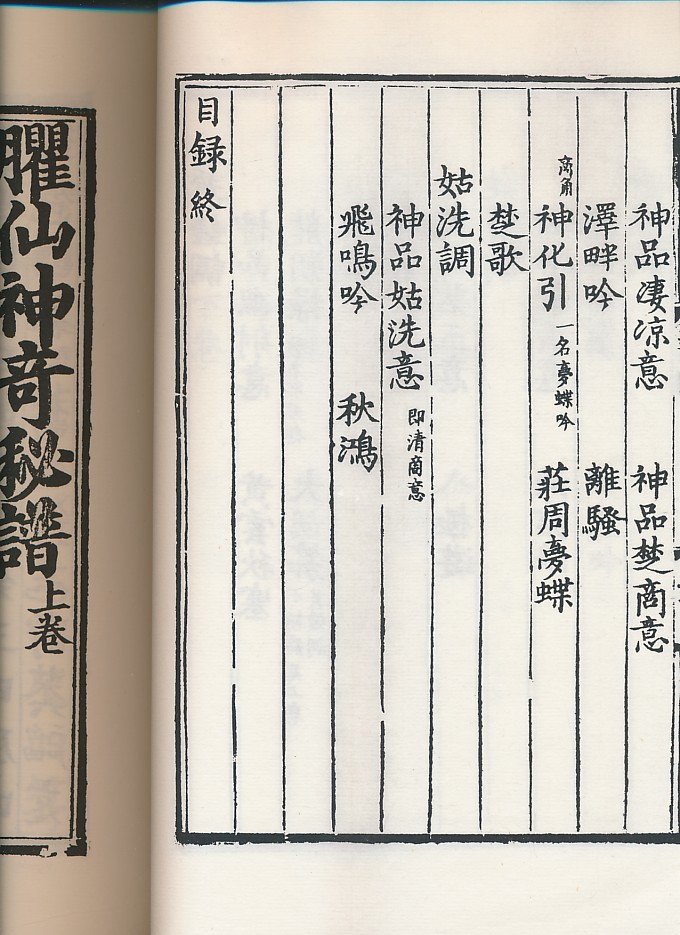 神品淒凉意　神品楚商意
澤畔吟　離騷
离角　神化引　一名夢蝶吟　莊周夢蝶
楚歌
姑洗調
神品姑洗意　即清商意
飛鳴吟　秋鴻
目録終
臞仙神奇秘譜上卷